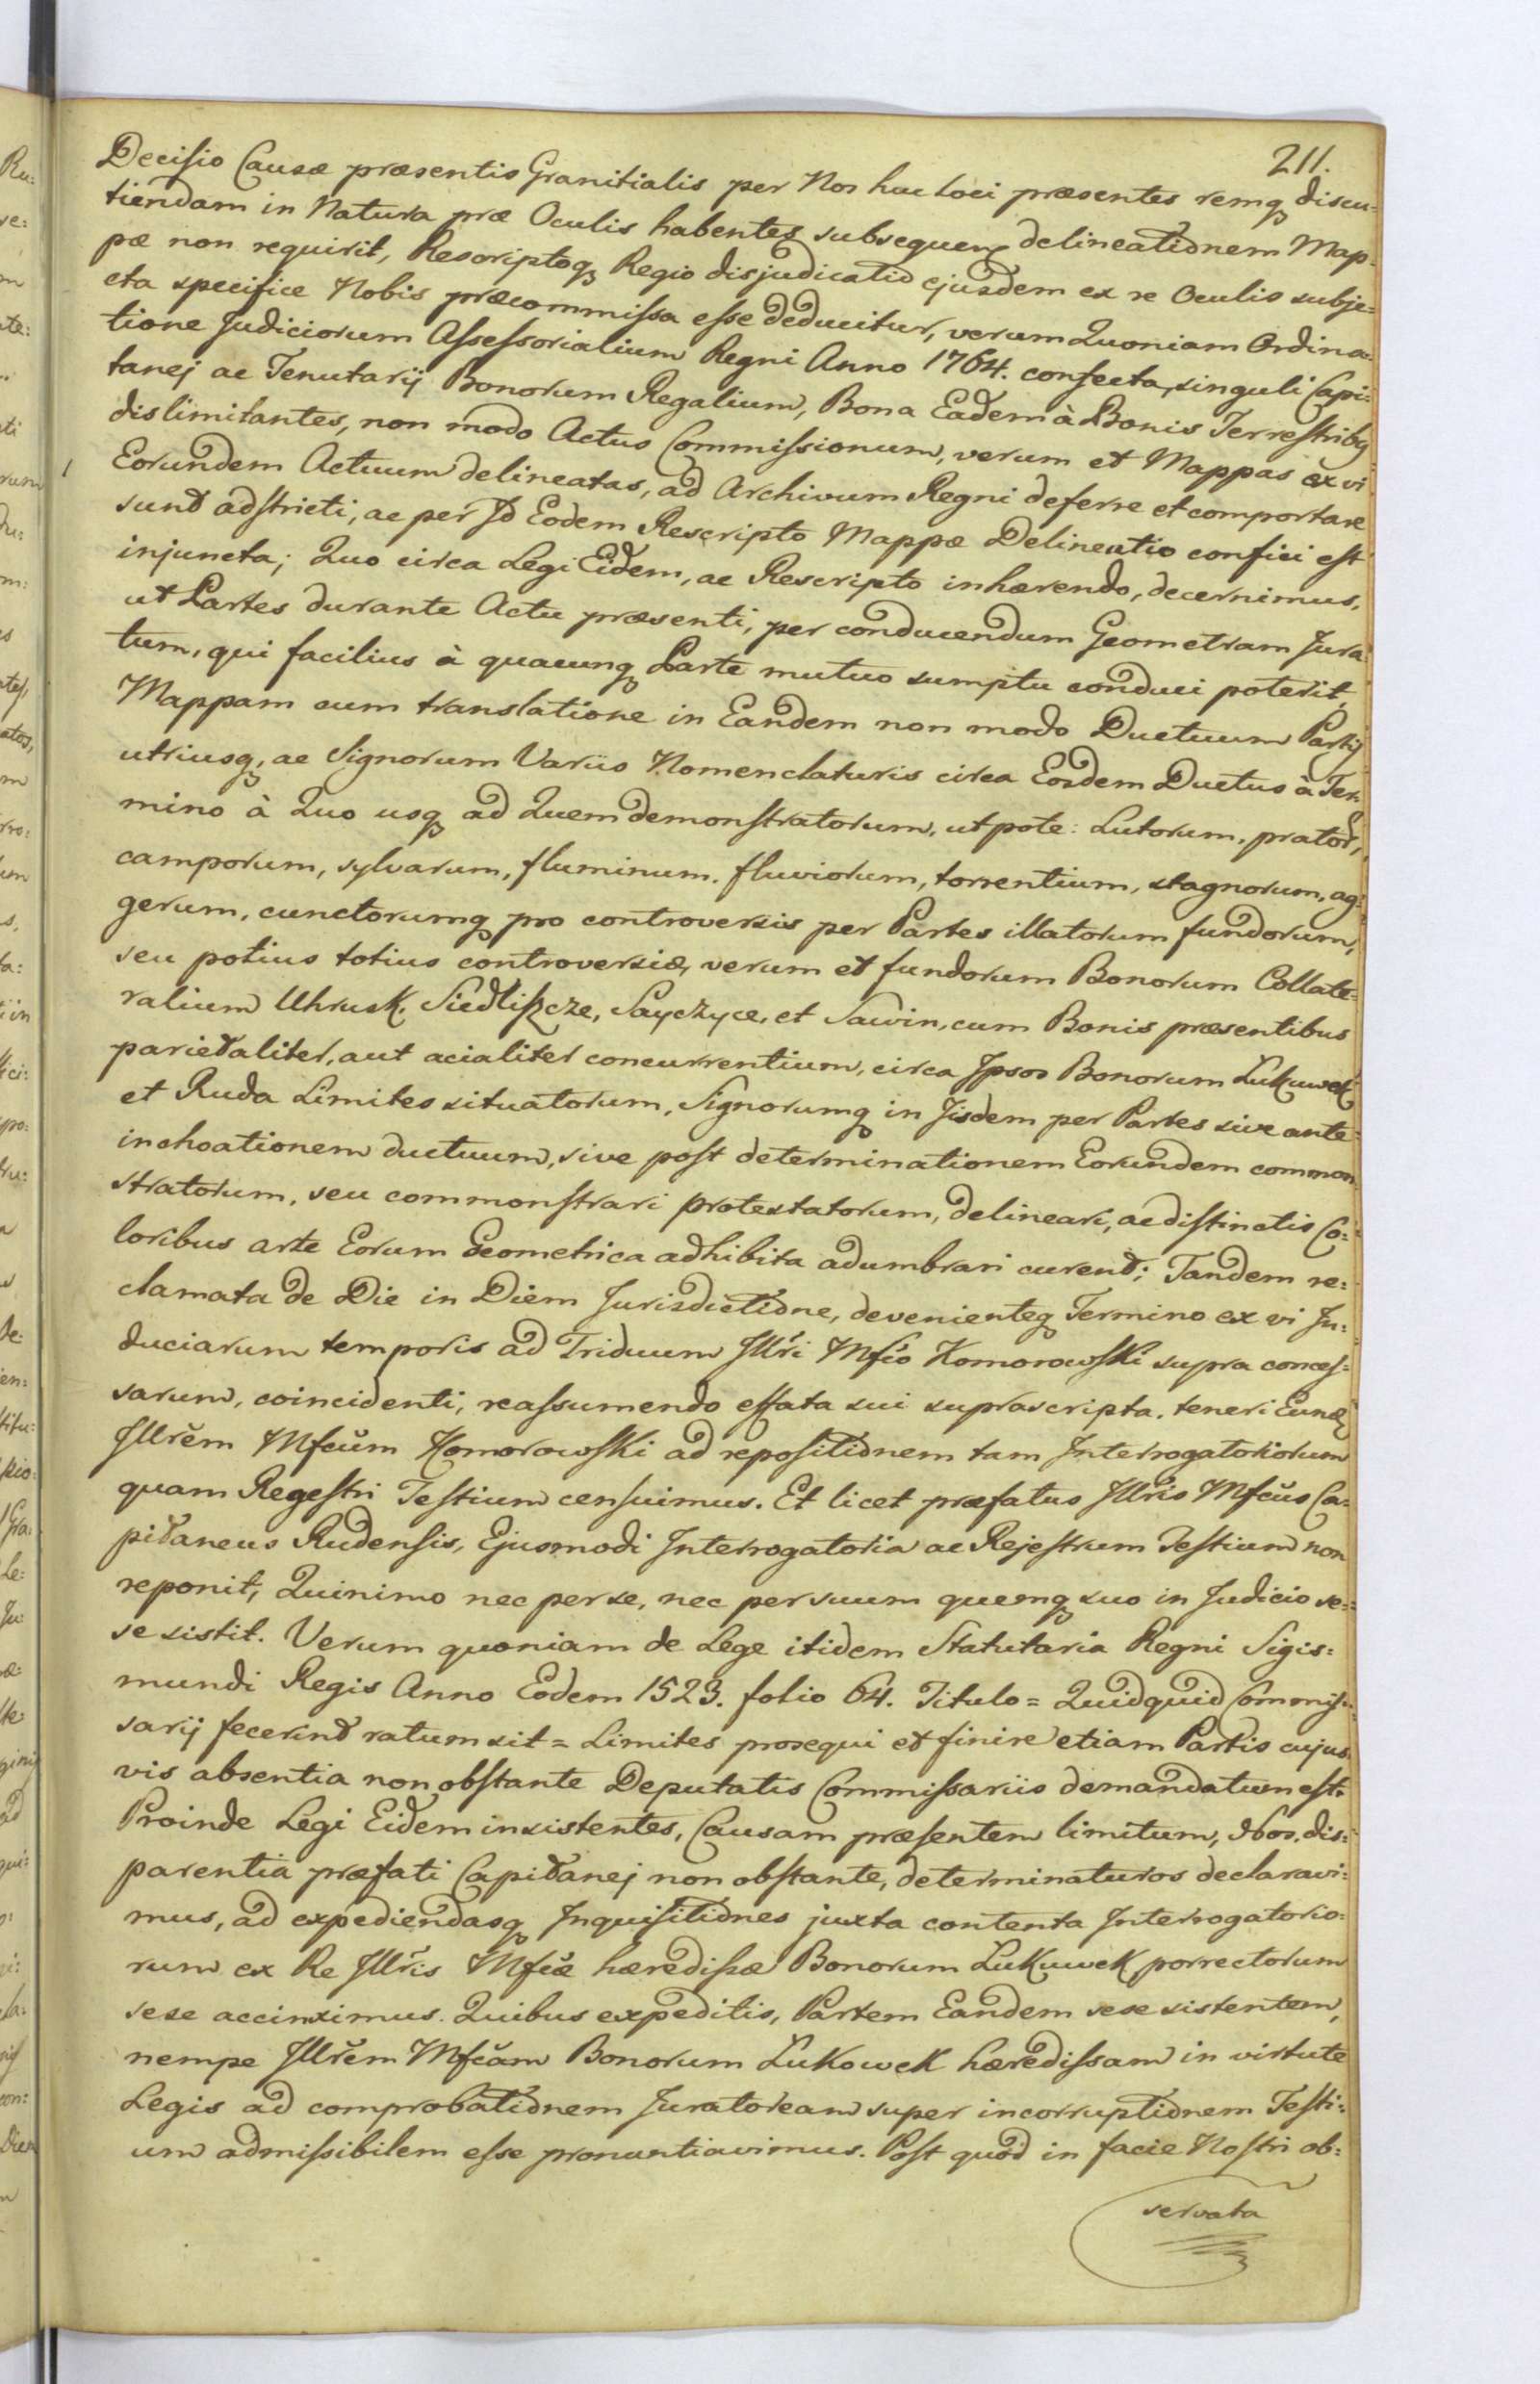 211.
Decisio Causæ præsentis Granitialis per Nos huc loci præsentes remq discu-
tiendam in Natura præ Oculis habentes subsequens delineationem Map-
pæ non requirit, Rescriptoq Regio disjudicatio ejusdem ex re Oculis subje-
cta specifice Nobis præcommissa esse deducitur, verum Quoniam Ordina-
tione Judiciorum Assessorialium Regni Anno 1764. confecta, singuli Capi-
tanej ac Tenutarij Bonorum Regalium, Bona Eadem à Bonis Terrestribq
dislimitantes, non modo Actus Commissionum, verum et Mappas ex vi
Eorundem Actuum delineatas, ad Archivum Regni deferre et comportare
sunt adstricti, ac per Id Eodem Rescripto Mappæ Delineatio confici est
injuncta; Quo circa Legi Eidem, ac Rescripto inhærendo, decernimus,
ut Partes durante Actu præsenti, per conducendum Geometram Jura-
tum, qui facilius à quacunq Parte mutuo sumptu conduci poterit,
Mappam cum translatione in Eandem non modo Ductuum Partis
utriusq, ac Signorum Variis Nomenclaturis circa Eosdem Ductus à Ter-
mino à Quo usq ad Quem demonstratorum, ut pote: Lutorum, prator,
camporum, sylvarum, fluminum. fluviorum, torrentium, stagnorum, ag-
gerum, cunctorumq pro controversis per Partes illatorum fundorum,
seu potius totius controversiæ, verum et fundorum Bonorum Collate-
ralium Uhrusk. Siedliszcze, Sayczyce, et Sawin, cum Bonis præsentibus
parietaliter, aut acialiter concurrentium, circa Ipsos Bonorum Lukuwek
et Ruda Limites situatorum, Signorumq in Iisdem per Partes sive ante
inchoationem ductuum, sive post determinationem Eorundem common
stratorum, seu commonstrari protestatorum, delineari, ac distinctis Co-
loribus arte Eorum Geometrica adhibita adumbrari curent; Tandem re:
clamata de Die in Diem Jurisdictione, devenienteq Termino ex vi In:
duciarum temporis ad Triduum Illri Mfco Komorowski supra conces-
sarum, coincidenti, reassumendo effata sui suprascripta, teneri Eund
Illrem Mfcum Komorowski ad repositionem tam Interrogatoriorum
quam Regestri Testium censuimus. Et licet præfatus Illris Mfcus Ca-
pitaneus Rudensis, Ejusmodi Interrogatoria ac Rejestrum Testium non
reponit, Quinimo nec per se, nec per suum quemq suo in Judicio se-
se sistit. Verum quoniam de Lege itidem Statutaria Regni Sigis:
mundi Regis Anno Eodem 1523. folio 64. Titulo = Quidquid Commis-
sarij fecerint ratum sit = Limites prosequi et finire etiam Partis cujus-
vis absentia non obstante Deputatis Commissariis demandatum est.
Proinde Legi Eidem insistentes, Causam præsentem limitum, Nos, dis:
parentia præfati Capitanej non obstante, determinaturos declaravi:
mus, ad expediendasq Inquisitiones juxta contenta Interrogatorio:
rum ex Re Illris Mfcæ hæredissæ Bonorum Lukuwek porrectorum
sese accinximus. Quibus expeditis, Partem Eandem sese sistentem,
nempe Illrem Mfcam Bonorum Lukowek hæredissam in virtute
Legis ad comprobationem Juratoream super incorruptionem Testi:
um admissibilem esse pronuntiavimus. Post quod in facie Nostri ob:
servata